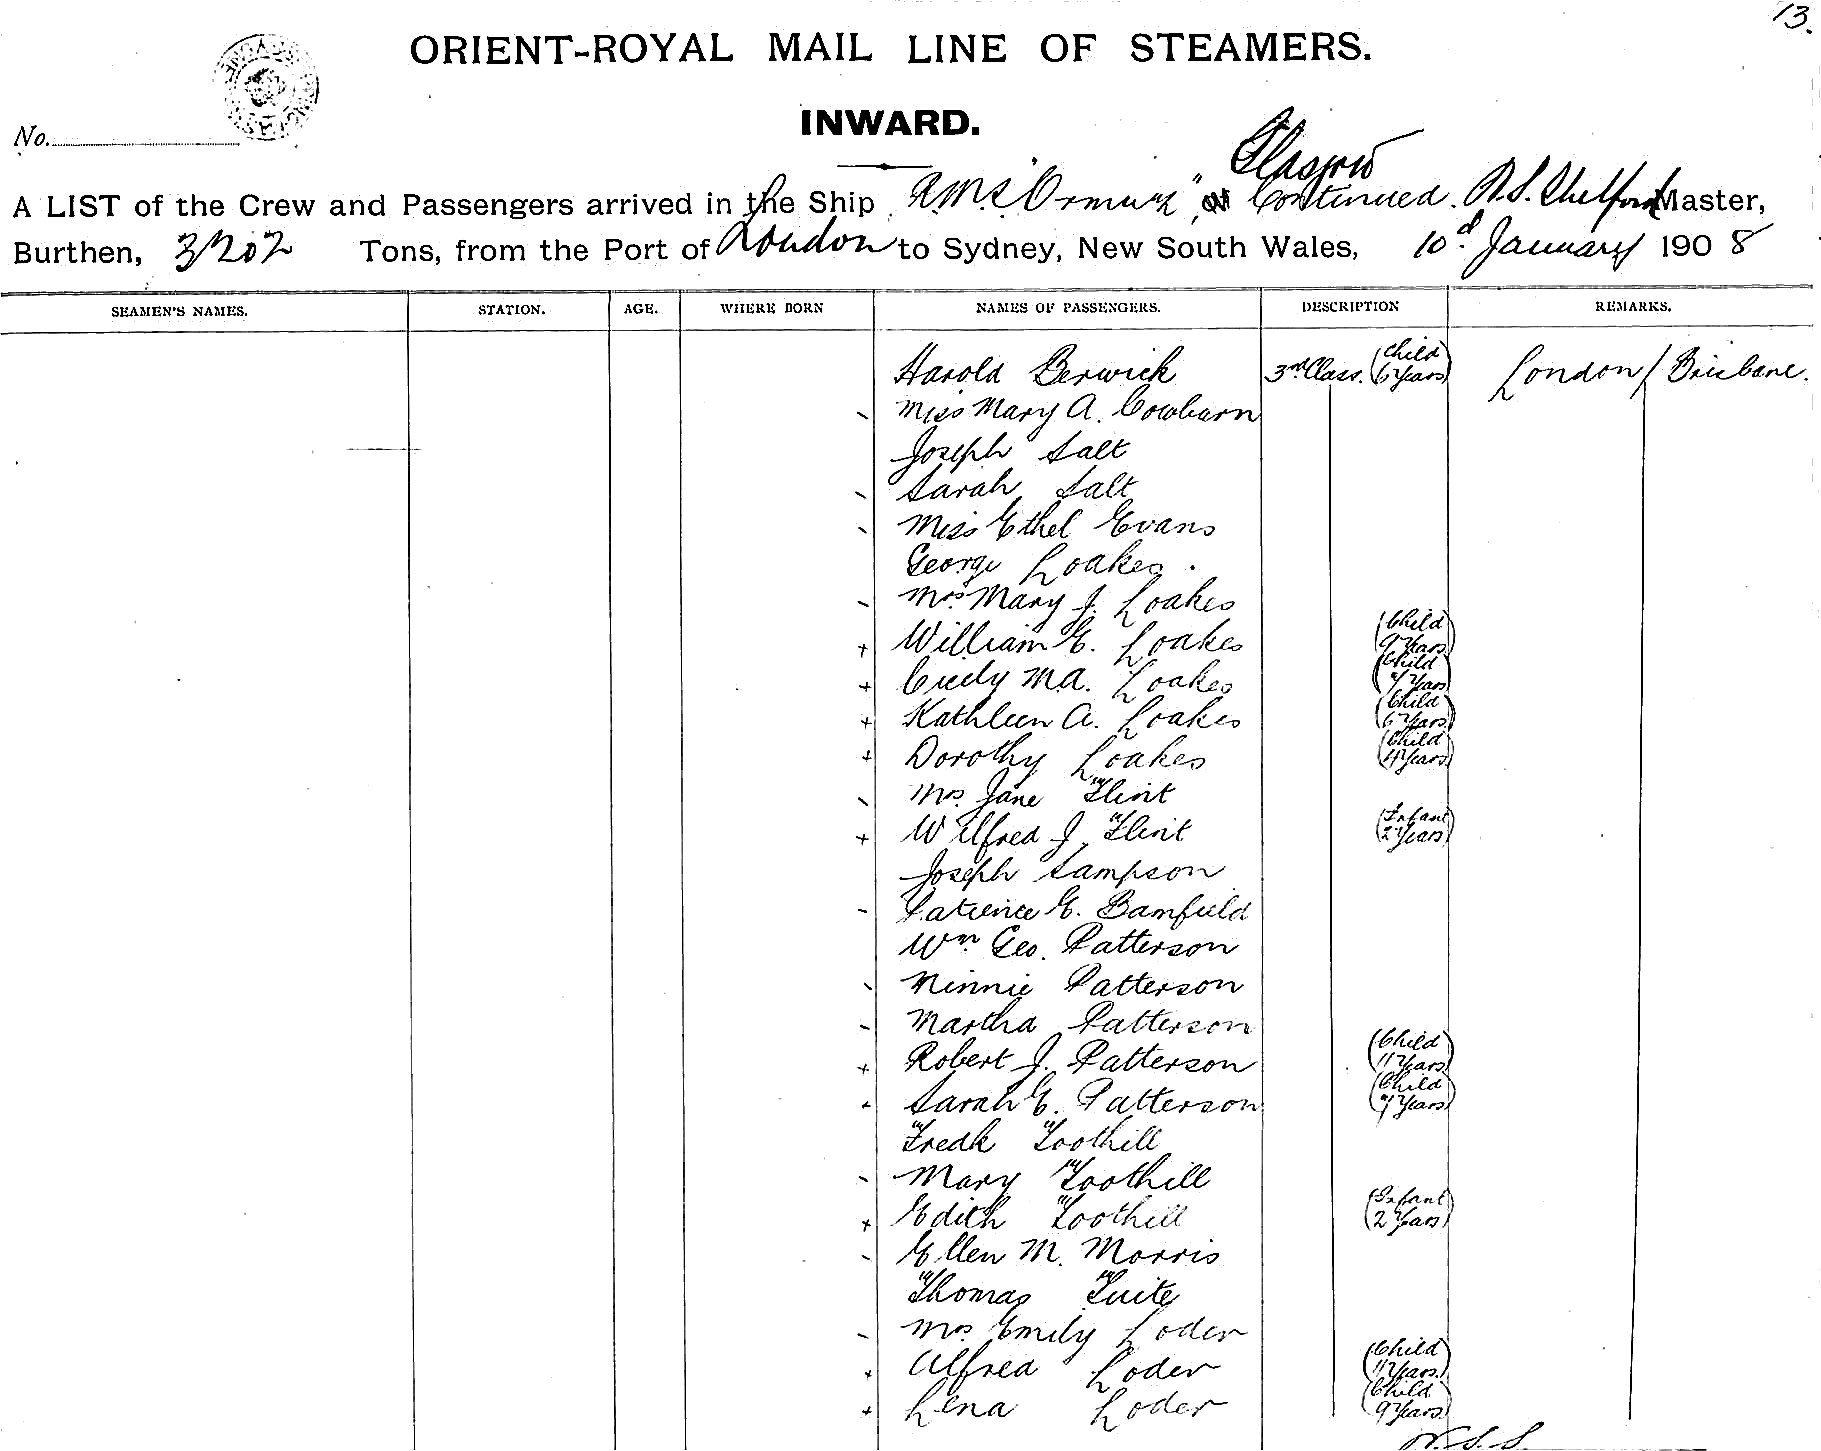 13.
ORIENT-ROYAL MAIL LINE OF STEAMERS.
INWARD.
No.
Glasgow
A LIST of the Crew and Passengers arrived in the Ship R.M.S. "Ormuz" of Continued. A.S. Shelford Master,
Burthen, 3202 Tons, from the Port of London to Sydney, New South Wales, 10th January 1908
SEAMEN'S NAMES. STATION. AGE. WHERE BORN NAMES OF PASSENGERS. DESCRIPTION REMARKS.
Harold Berwick 3rd Class. (Child 6 Years) London / Brisbane.
Miss Mary A. Cowburn
Joseph Salt
Sarah Salt
Miss Ethel Evans
George Loakes.
Mrs Mary J. Loakes
William E. Loakes (Child 9 Years)
Cicely M.A. Loakes (Child 7 Years)
Kathleen A. Loakes (Child 6 Years)
Dorothy Loakes (Child 4 Years)
Mrs. Jane Flint
Wilfred J. Flint (Infant 2 Years)
Joseph Sampson
Patience E. Bamfield
Wm Geo. Patterson
Minnie Patterson
Martha Patterson
Robert J. Patterson (Child 11 Years)
Sarah E. Patterson (Child 7 Years)
Fredk Toothill
Mary Toothill
Edith Toothill (Infant 2 Years)
Ellen M. Morris
Thomas Tuite
Mrs Emily Loder
Alfred Loder (Child 11 Years)
Lena Loder (Child 9 Years)